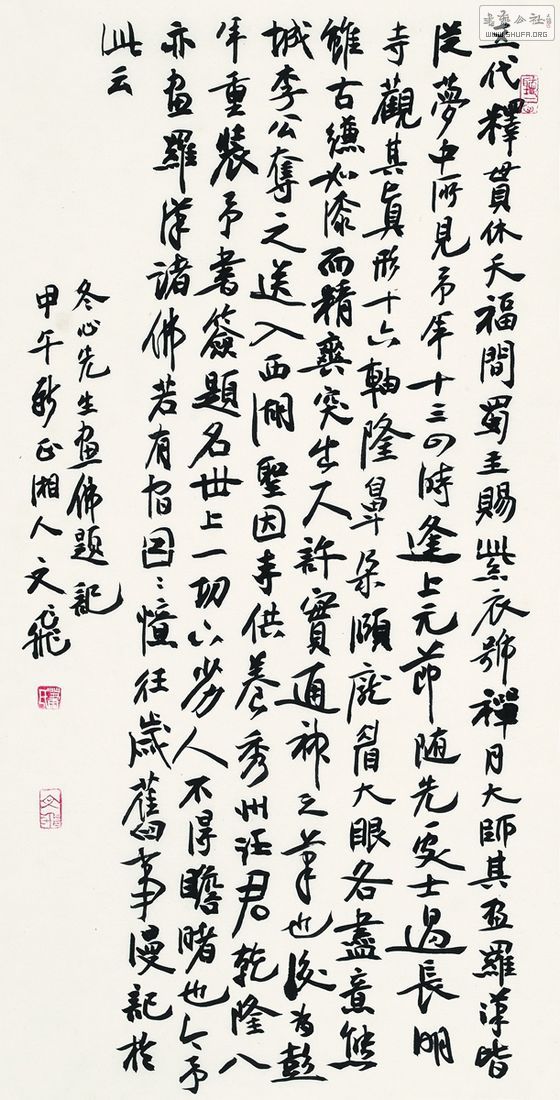 五代釋貫休天福間蜀主賜紫衣號禪月大師其画羅漢皆
從夢中所見予年十三四時逢上元節随先處士過長明
寺觀其真形十六軸隆鼻朵頤龎眉大眼各盡意態
雖古縑如漆而精爽突出不許實通神之筆也後為彭
城李公奪之送入西湖聖因寺供養秀州汪君乾隆八
年重裝予書簽題名世上一切下劣人不得瞻睹也今予
亦画羅漢諸佛若有宿因〻憶往歲舊事漫記於
此云
冬心先生画佛題記
甲午新正湘人文飛
書法公社
WWW.SHUFA.ORG